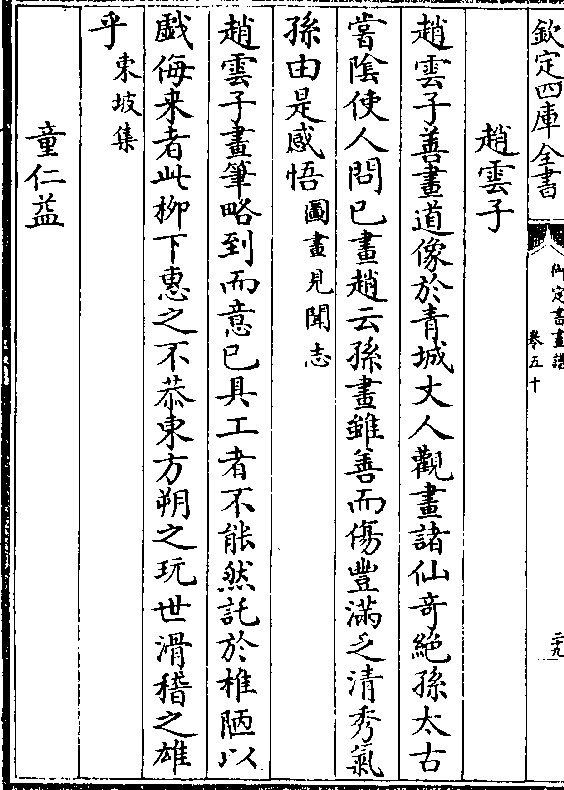 欽定四庫全書
御定書畫譜
卷五十
二十九
趙雲子
趙雲子善畫道像於青城丈人觀畫諸仙奇絶孫太古
嘗陰使人問已畫趙云孫畫雖善而傷豐滿乏清秀氣
孫由是感悟圖畫見聞志
趙雲子畫筆略到而意已具工者不能然託於椎陋以
戲侮来者此栁下惠之不恭東方朔之玩世滑稽之雄
乎東坡集
童仁益